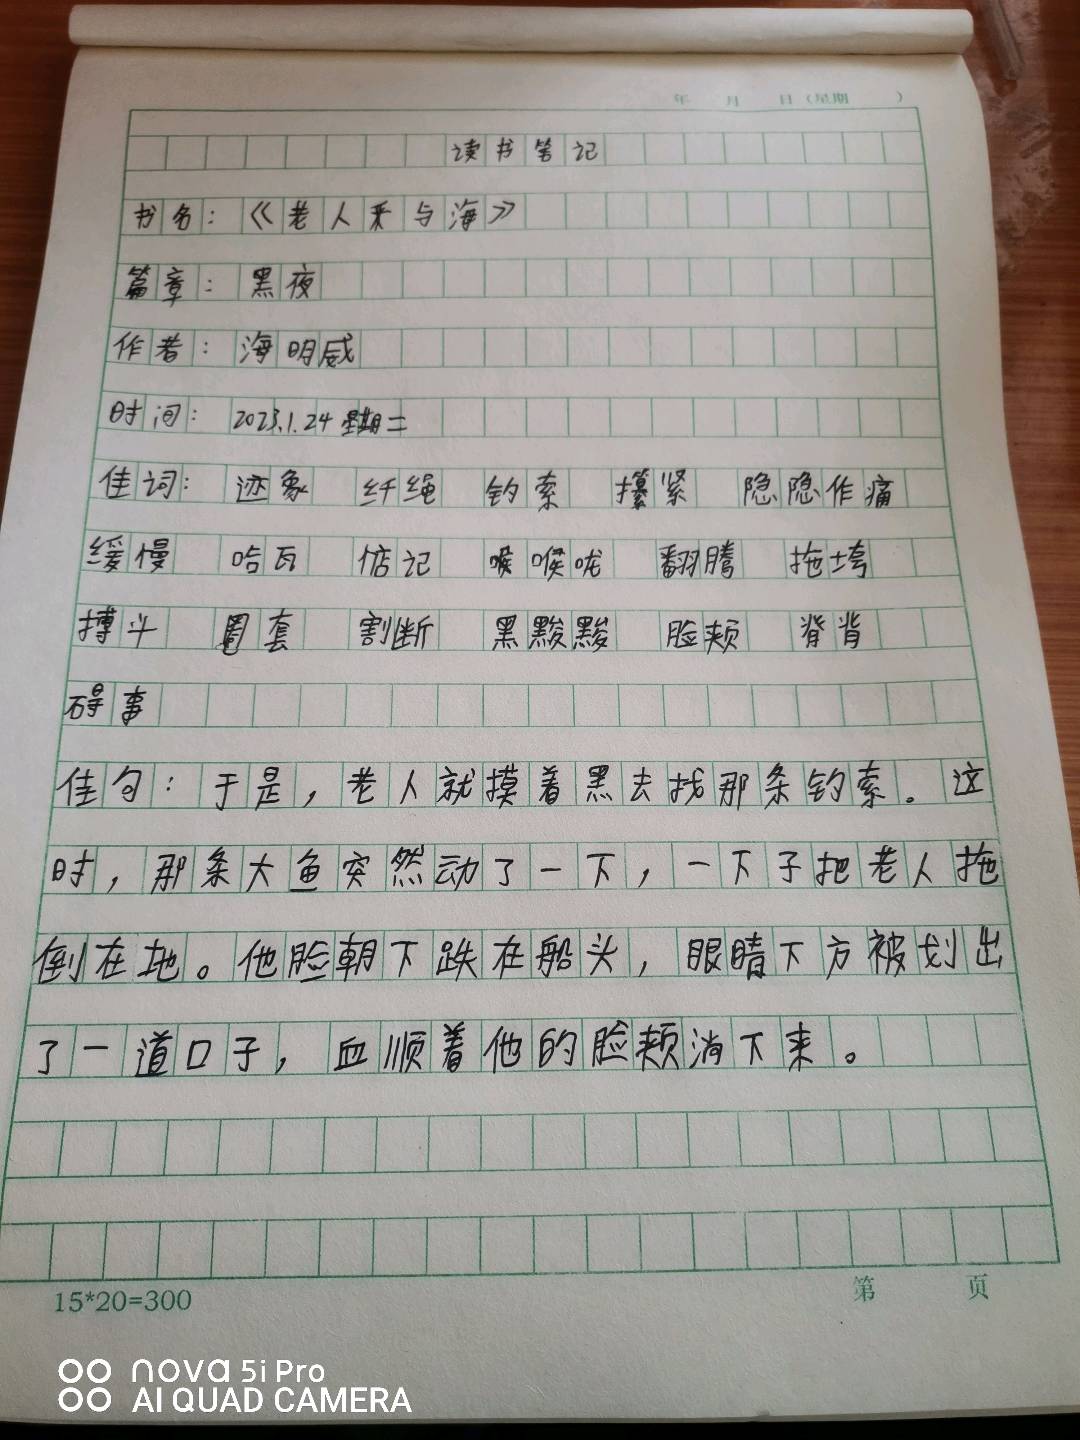 年 月 日(星期 )
读书笔记
书名：《老人和与海》
篇章：黑夜
作者：海明威
时间：2023.1.24 星期二
佳词：迹象 纤绳 钓索 攥紧 隐隐作痛
缓慢 哈瓦 惦记 喉喉咙 翻腾 拖垮
搏斗 圈套 割断 黑黢黢 脸颊 脊背
碍事
佳句：于是，老人就摸着黑去找那条钓索。这
时，那条大鱼突然动了一下，一下子把老人拖
倒在地。他脸朝下跌在船头，眼睛下方被划出
了一道口子，血顺着他的脸颊淌下来。
15*20=300
第 页
nova 5i Pro
AI QUAD CAMERA